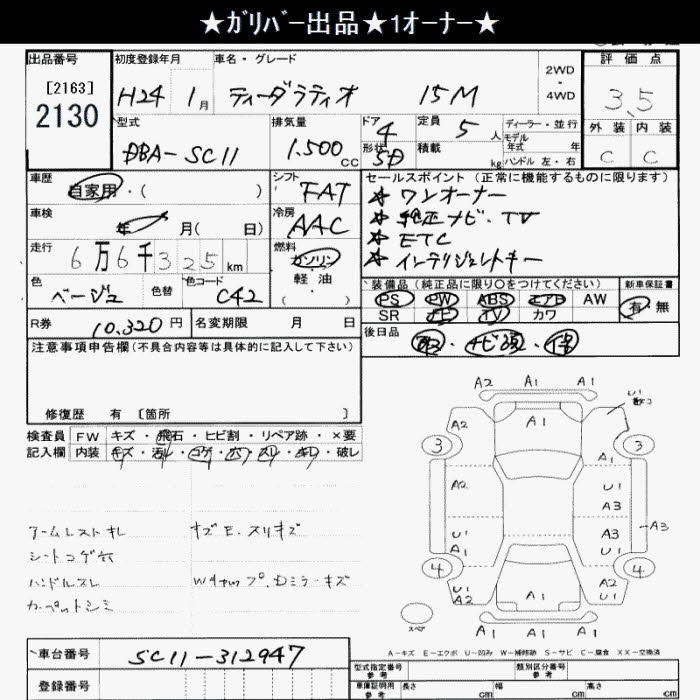 ★ガリバー出品★1オーナー★
出品番号 初度登録年月 車名・グレード 2WD・4WD 評価点
[2163] 2130 H24 1月 ティーダラティオ 15M 3.5
型式 排気量 ドア 4 定員 5人 ディーラー・並行 外装 内装
DBA-SC11 1.500cc 形状 5D 積載 kg モデル年式 年 ハンドル 左・右 C C
車歴 自家用・( ) シフト FAT セールスポイント(正常に機能するものに限ります)
★ ワンオーナー
車検 年 月( 日) 冷房 AAC ★ 純正ナビ・TV
走行 6万6千325km 燃料 ガソリン ★ ETC
軽油 ・( ) ★ インテリジェントキー
色 ベージュ 色替 色コード C42
装備品(純正品に限り○をつけてください) 新車保証書
PS PW ABS エアB AW 有・無
SR ナビ TV カワ
R券 10,320円 名変期限 月 日 後日品
注意事項申告欄(不具合内容等は具体的に記入して下さい)
修復歴 有〔箇所 〕
検査員記入欄 FW キズ・飛石・ヒビ割・リペア跡・×要
内装 キズ・汚れ・コゲ・穴・スレ・キレ・破レ
アームレストキレ キズE.スリキズ
シートコゲ穴
ハンドルスレ Dミラーキズ
カーペットシミ
A2 A1 A1
A2 A1
3 3
A2 U1
A3
U1 A1 A3 A3
U1
4 4
U1 A2 A1 A2 U1
スペア
A1 A1 A1
A-キズ E-エクボ U-凹み W-補修跡 S-サビ C-腐食 XX-交換済
車台番号 SC11-312947
登録番号
型式指定番号 参考 類別区分番号 参考
車庫証明用 参考 長さ cm 幅 cm 高さ cm